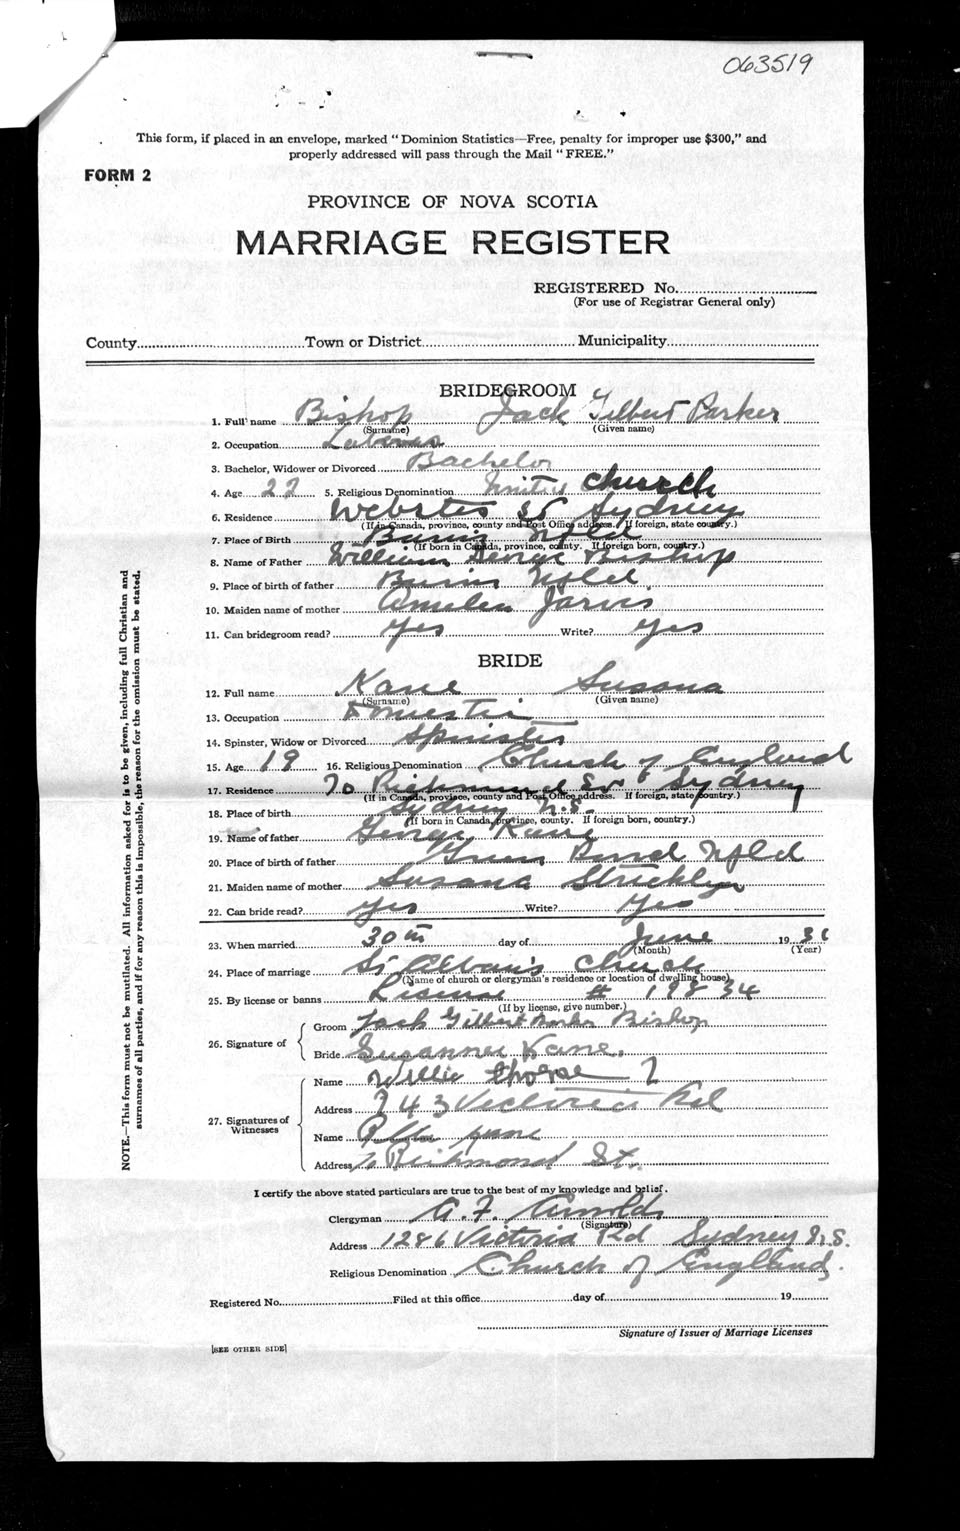 063519
This form, if placed in an envelope, marked "Dominion Statistics—Free, penalty for improper use $300," and
properly addressed will pass through the Mail "FREE."
FORM 2
PROVINCE OF NOVA SCOTIA
MARRIAGE REGISTER
REGISTERED No.
(For use of Registrar General only)
County Town or District Municipality
BRIDEGROOM
1. Full name Bishop Jack Gilbert Parker
(Surname) (Given name)
2. Occupation
3. Bachelor, Widower or Divorced Bachelor
4. Age 22 5. Religious Denomination United Church
6. Residence Webster St Sydney
(If in Canada, province, county and Post Office address. If foreign, state country.)
7. Place of Birth Burin Nfld
(If born in Canada, province, county. If foreign born, country.)
8. Name of Father William George Bishop
9. Place of birth of father Burin Nfld
10. Maiden name of mother Amelia Jarvis
11. Can bridegroom read? Yes Write? Yes
BRIDE
12. Full name Kane Susana
(Surname) (Given name)
13. Occupation Domestic
14. Spinster, Widow or Divorced Spinster
15. Age 19 16. Religious Denomination Church of England
17. Residence 70 Richmond St Sydney
(If in Canada, province, county and Post Office address. If foreign, state country.)
18. Place of birth Sydney N.S.
(If born in Canada, province, county. If foreign born, country.)
19. Name of father George Kane
20. Place of birth of father Nfld
21. Maiden name of mother Susana
22. Can bride read? Yes Write? Yes
23. When married 30th day of June 19
(Month) (Year)
24. Place of marriage St Church
(Name of church or clergyman's residence or location of dwelling house)
25. By license or banns License # 19834
(If by license, give number.)
26. Signature of
Groom Jack Gilbert Parker Bishop
Bride Susanna Kane.
27. Signatures of Witnesses
Name Willie
Address 743 Victoria Rd
Name Kane
Address 70 Richmond St.
I certify the above stated particulars are true to the best of my knowledge and belief.
Clergyman A. F. Arnold
(Signature)
Address 1286 Victoria Rd Sydney N.S.
Religious Denomination Church of England.
Registered No. Filed at this office day of 19
Signature of Issuer of Marriage Licenses
[SEE OTHER SIDE]
NOTE.—This form must not be mutilated. All information asked for is to be given, including full Christian and
surnames of all parties, and if for any reason this is impossible, the reason for the omission must be stated.